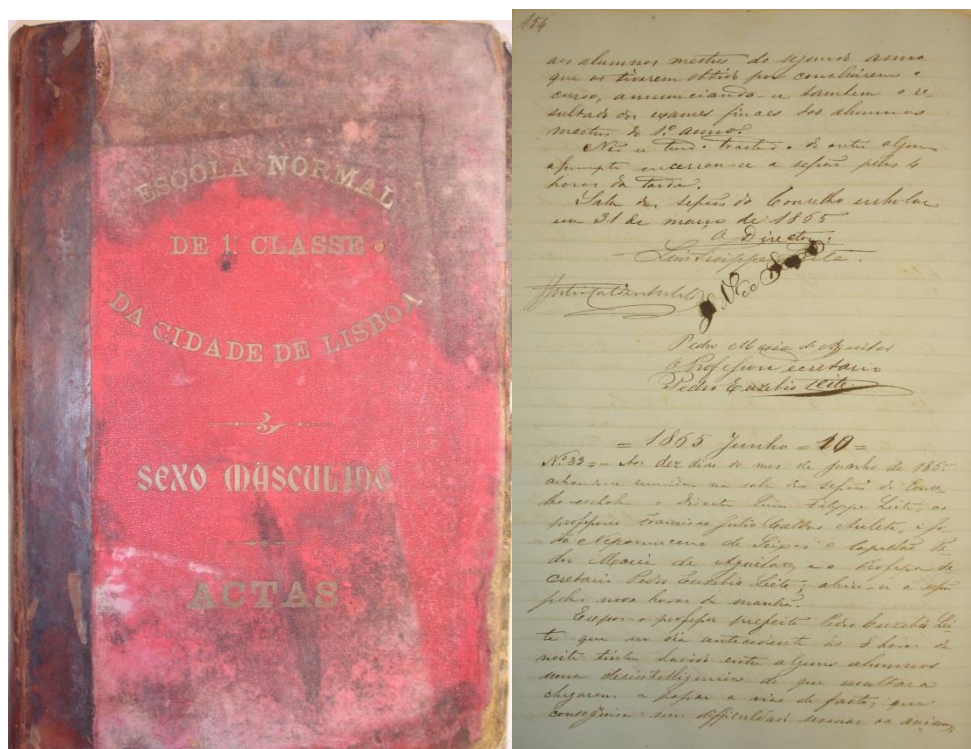 ESCOLA NORMAL
DE 1.ª CLASSE
DA CIDADE DE LISBOA
SEXO MASCULINO
ACTAS
154
aos alumnos mestres do segundo anno
que os tiverem obtido por concluirem o
curso, annunciando-se tambem o re
sultado dos exames finaes dos alumnos
mestres do 1.º anno.
Não se tendo tractado de outro algum
assumpto encerrou-se a sessão pelas 4
horas da tarde.
Sala das sessões do Conselho escholar
em 31 de março de 1865
O Director,
Luis Filippe Leite.
Pedro Maria de Aguilar
O Professor secretario
Pedro Euzebio Leite
= 1865 Junho = 10 =
N.º 33 = Aos dez dias do mez de Junho de 1865
achando-se reunidos na sala das sessões do Conse
lho escholar o Director Luis Filippe Leite, os
professores Francisco Julio Caldas Aulete, e Jo
ão Nepomuceno de Seixas o Capellão Pe
dro Maria de Aguilar, e o Professor se
cretario Pedro Euzebio Leite; abriu-se a sessão
pelas nove horas da manhã.
Expoz o professor prefeito Pedro Euzebio Lei
te que no dia antecedente ás 8 horas da
noite tinha havido entre alguns alumnos
uma desintelligencia de que resultára
chegarem a passar a vias de facto; que
conseguira sem difficuldade serenar os animos,